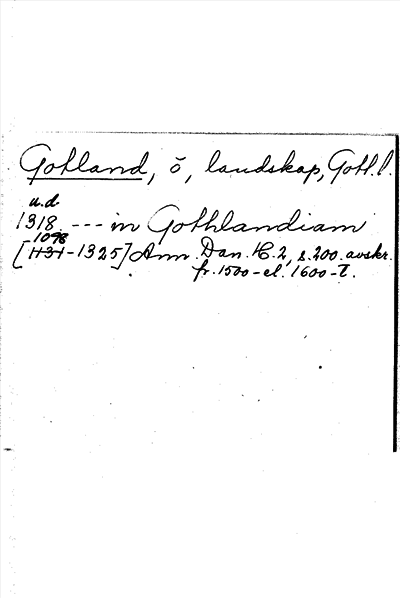 Gotland, ö, landskap, Gotl. l.
u.d
1318 --- in Gothlandiam
1098
[1131-1325] Ann. Dan. H. 2, s. 200. avskr.
fr. 1500- el. 1600-t.